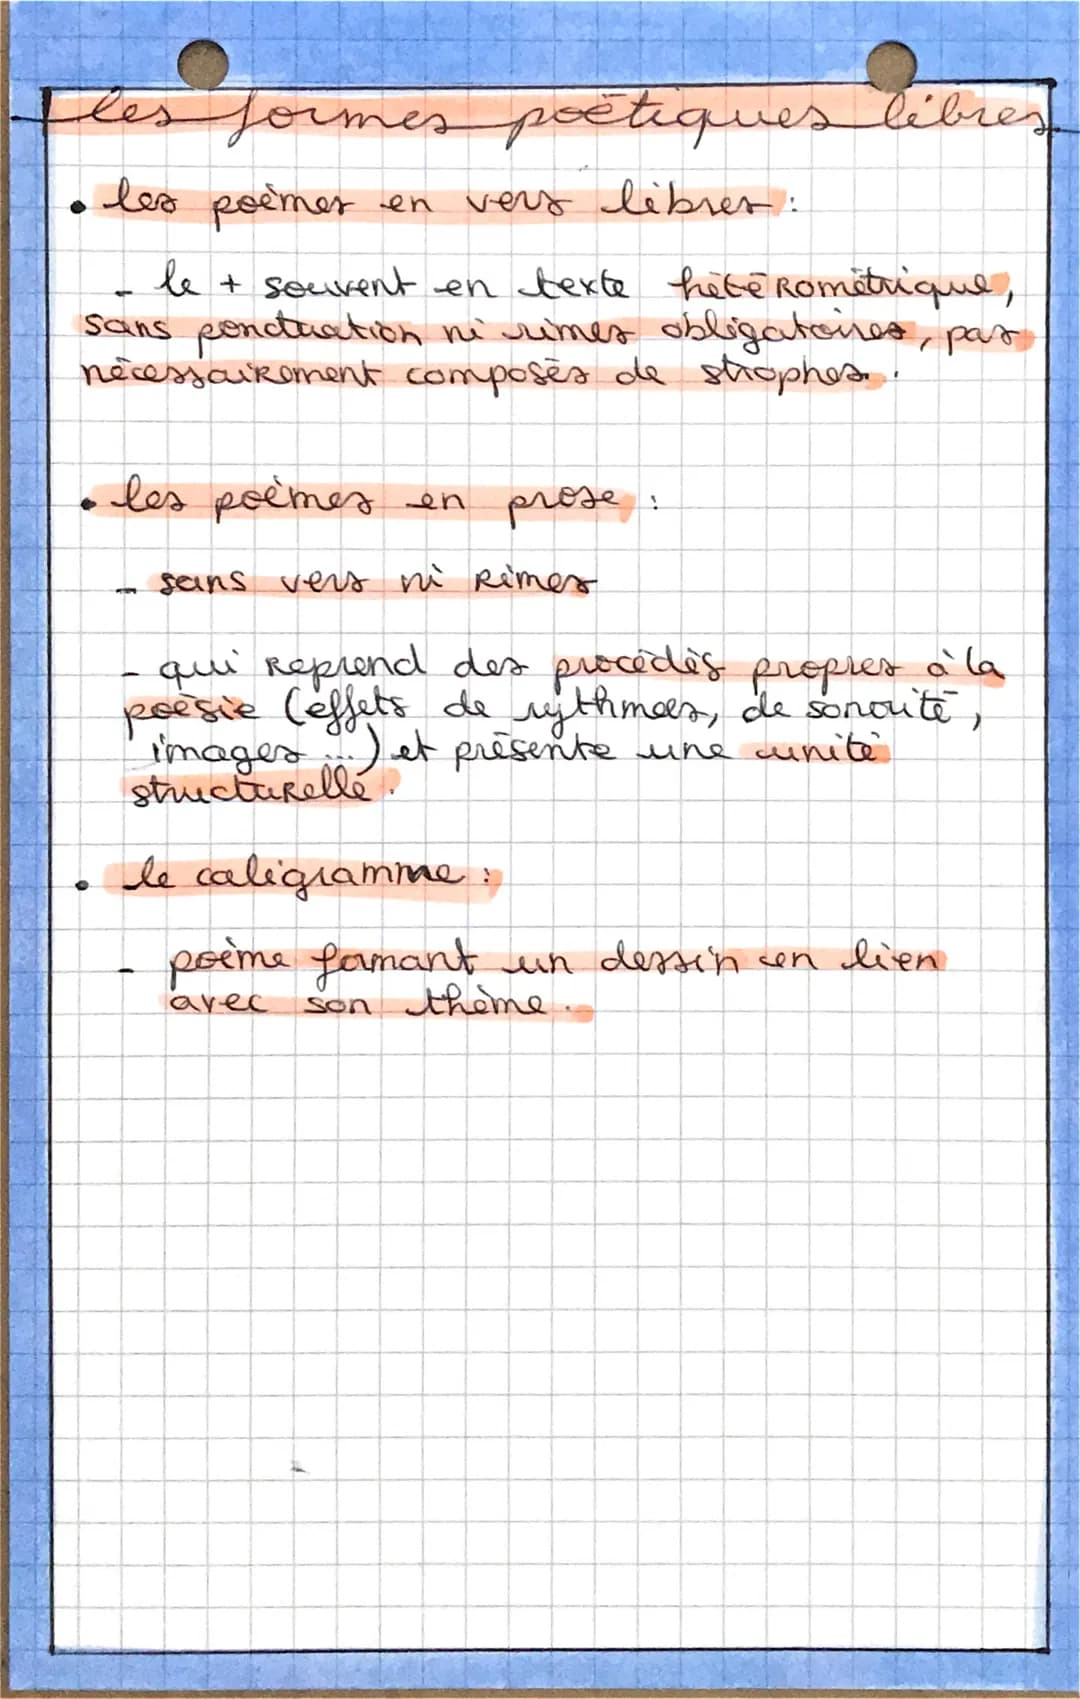 les formes poétiques libres
• les poèmes en vers libres :
- le + souvent en texte hétérométrique,
sans ponctuation ni rimes obligatoires, pas
nécessairement composés de strophes.
• les poèmes en prose :
- sans vers ni rimes
- qui reprend des procédés propres à la
poésie (effets de rythmes, de sonorité,
images ...) et présente une unité
structurelle.
• le caligramme :
- poème formant un dessin en lien
avec son thème.